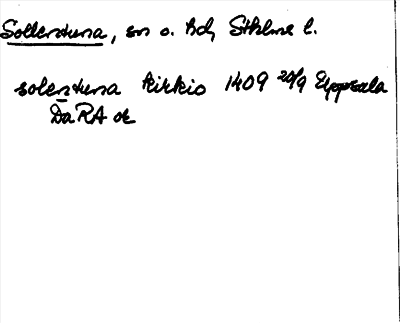 Sollentuna, sn o. hd, Sthlms l.
solentuna kirkio 1409 20/9 Uppsala
DaRA or